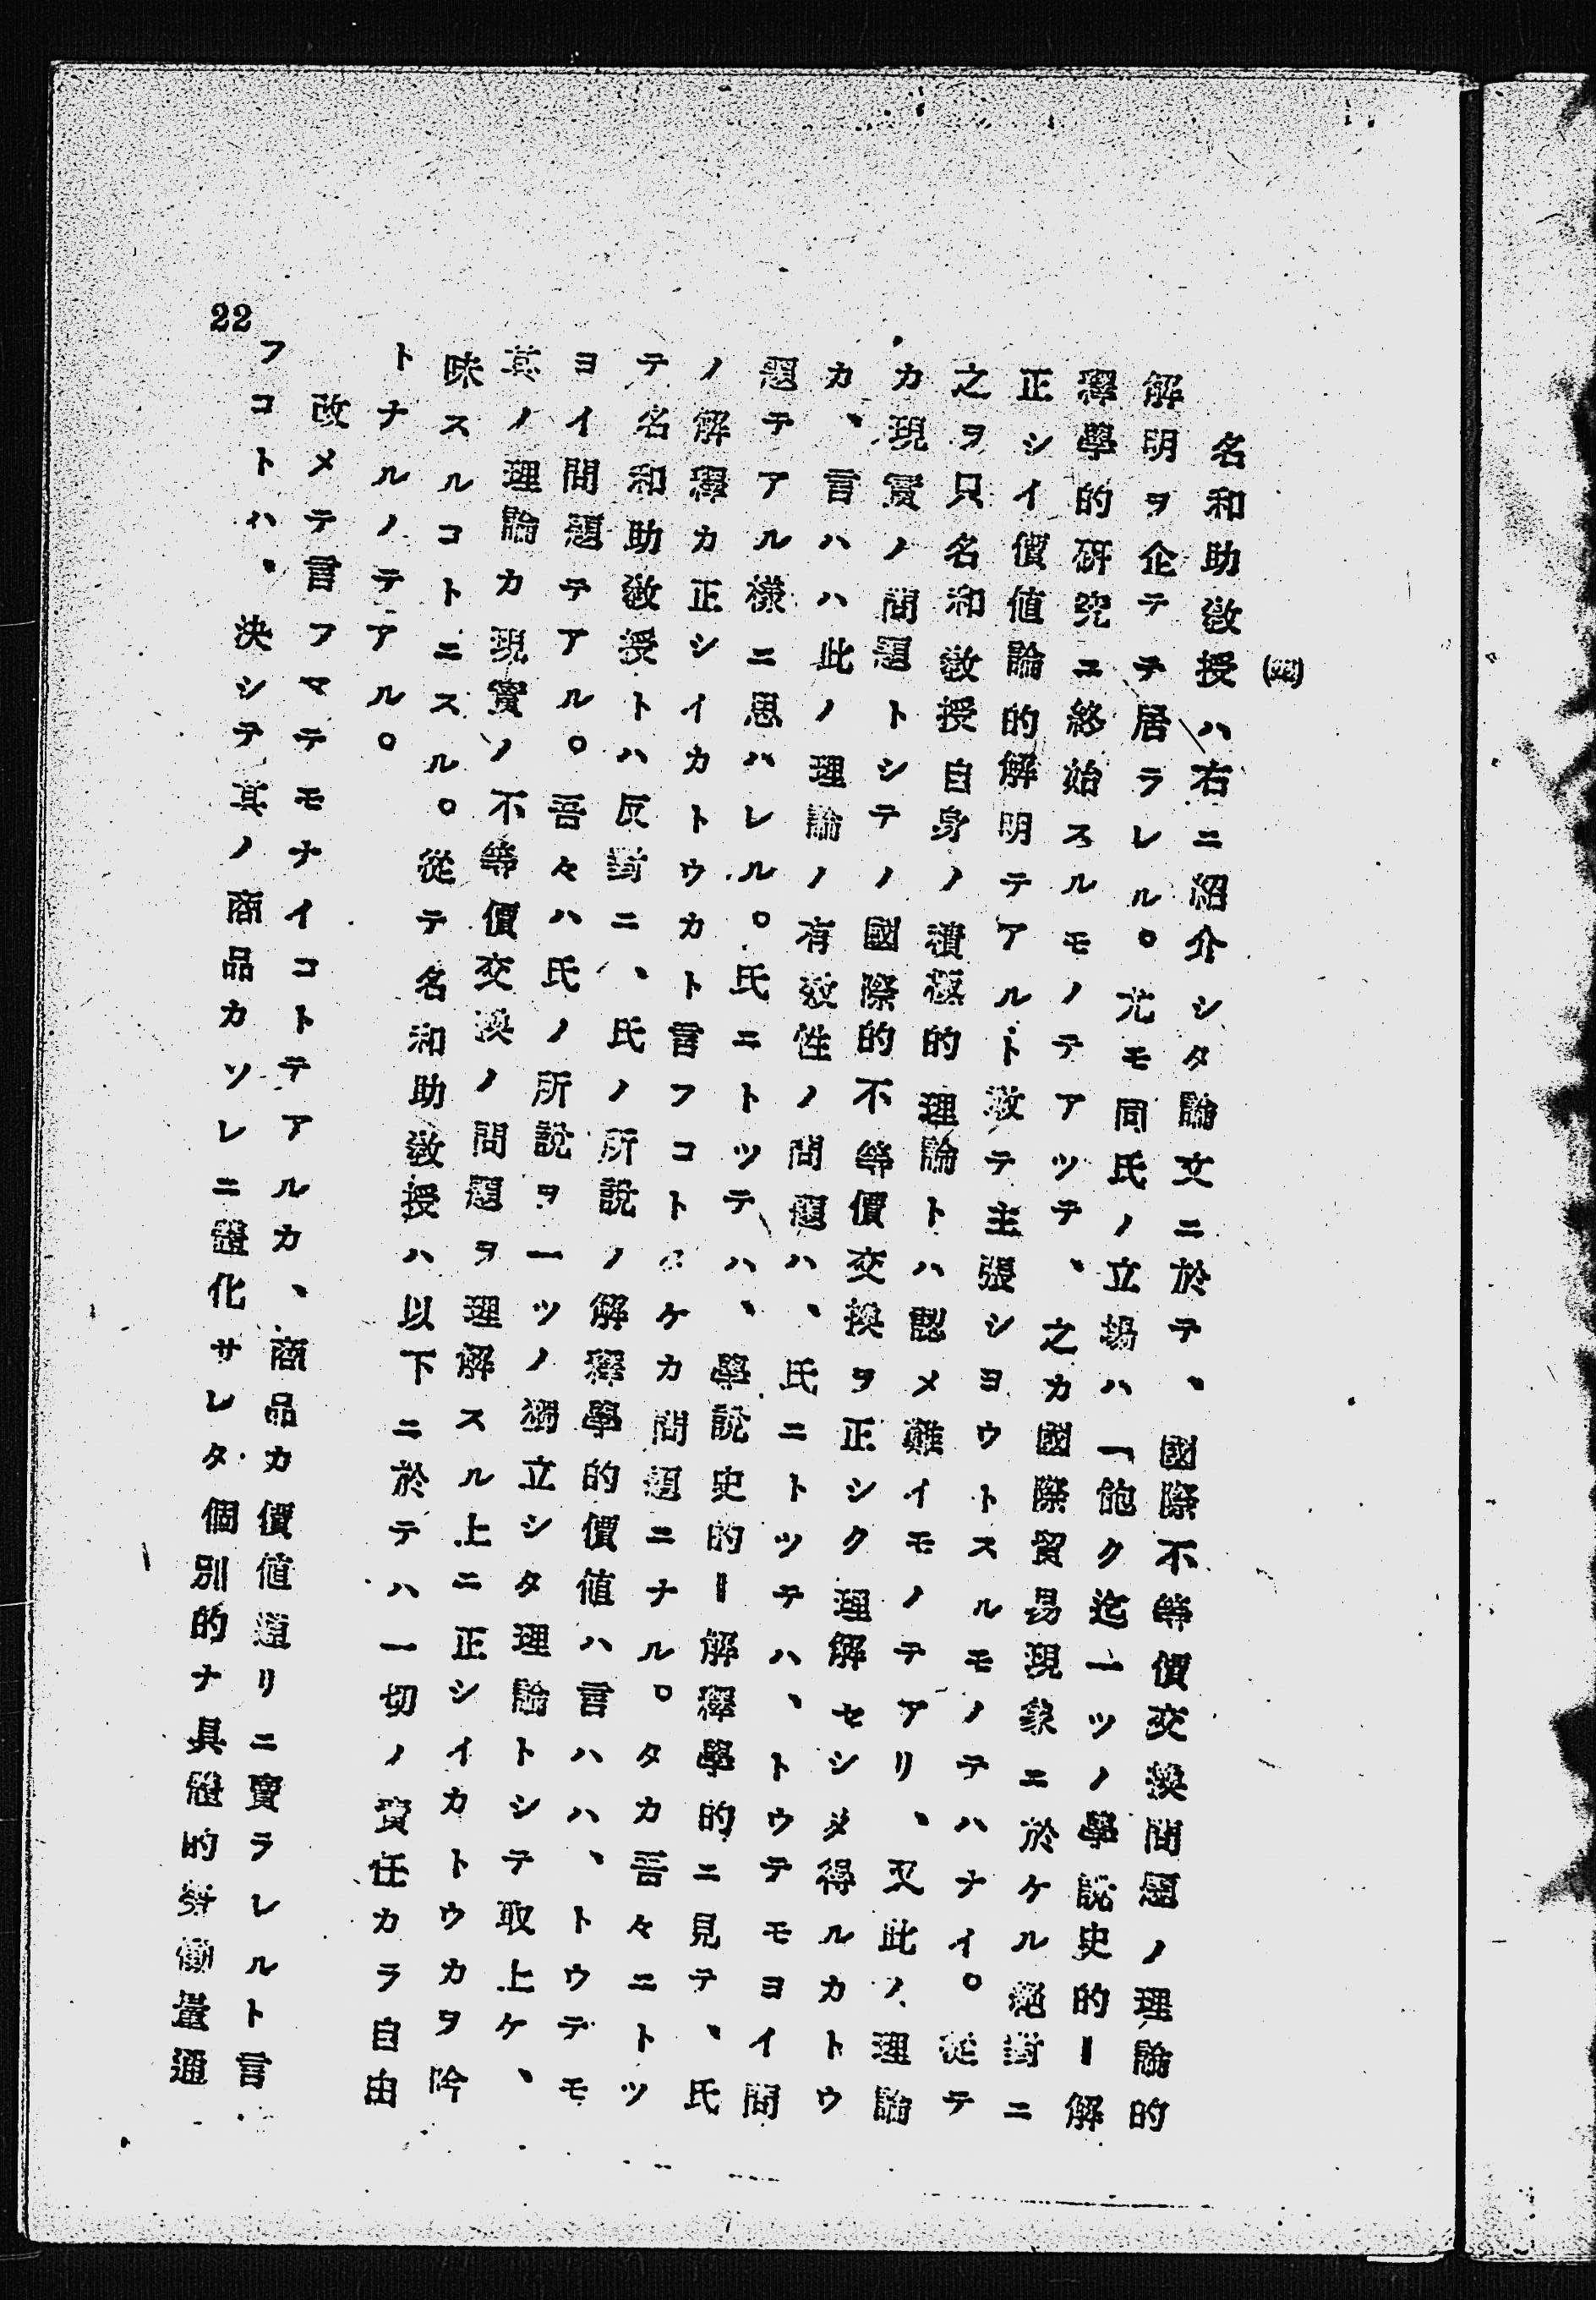 (四)
名和助敎授ハ右ニ紹介シタ論文ニ於テ、國際不等價交換問題ノ理論的
解明ヲ企テテ居ラレル。尤モ同氏ノ立場ハ「飽ク迄一ツノ學說史的ー解
釋學的硏究ニ終始スルモノテアツテ、之カ國際貿易現象ニ於ケル絕對ニ
正シイ價値論的解明テアルト敢テ主張シヨウトスルモノテハナイ。從テ
之ヲ只名和敎授自身ノ積極的理論トハ認メ難イモノテアリ、又此ノ理論
カ現實ノ問題トシテノ國際的不等價交換ヲ正シク理解セシメ得ルカトウ
カ、言ハハ此ノ理論ノ有效性ノ問題ハ、氏ニトツテハ、トウテモヨイ問
題テアル樣ニ思ハレル。氏ニトツテハ、學說史的ー解釋學的ニ見テ、氏
ノ解釋カ正シイカトウカト言フコトタケカ問題ニナル。タカ吾々ニトツ
テ名和助敎授トハ反對ニ、氏ノ所說ノ解釋學的價値ハ言ハハ、トウテモ
ヨイ問題テアル。吾々ハ氏ノ所說ヲ一ツノ獨立シタ理論トシテ取上ケ、
其ノ理論カ現實ノ不等價交換ノ問題ヲ理解スル上ニ正シイカトウカヲ吟
味スルコトニスル。從テ名和助敎授ハ以下ニ於テハ一切ノ責任カラ自由
トナルノテアル。
改メテ言フマテモナイコトテアルカ、商品カ價値通リニ賣ラレルト言
フコトハ、決シテ其ノ商品カソレニ體化サレタ個別的ナ具體的勞働量通
22